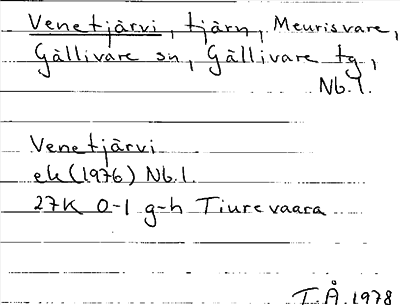 Venetjärvi, tjärn, Meurisvare,
Gällivare sn, Gällivare tg,
Nb.l.
Venetjärvi
ek(1976) Nb.l.
27K 0-1 g-h Tiurevaara
T.Å. 1978